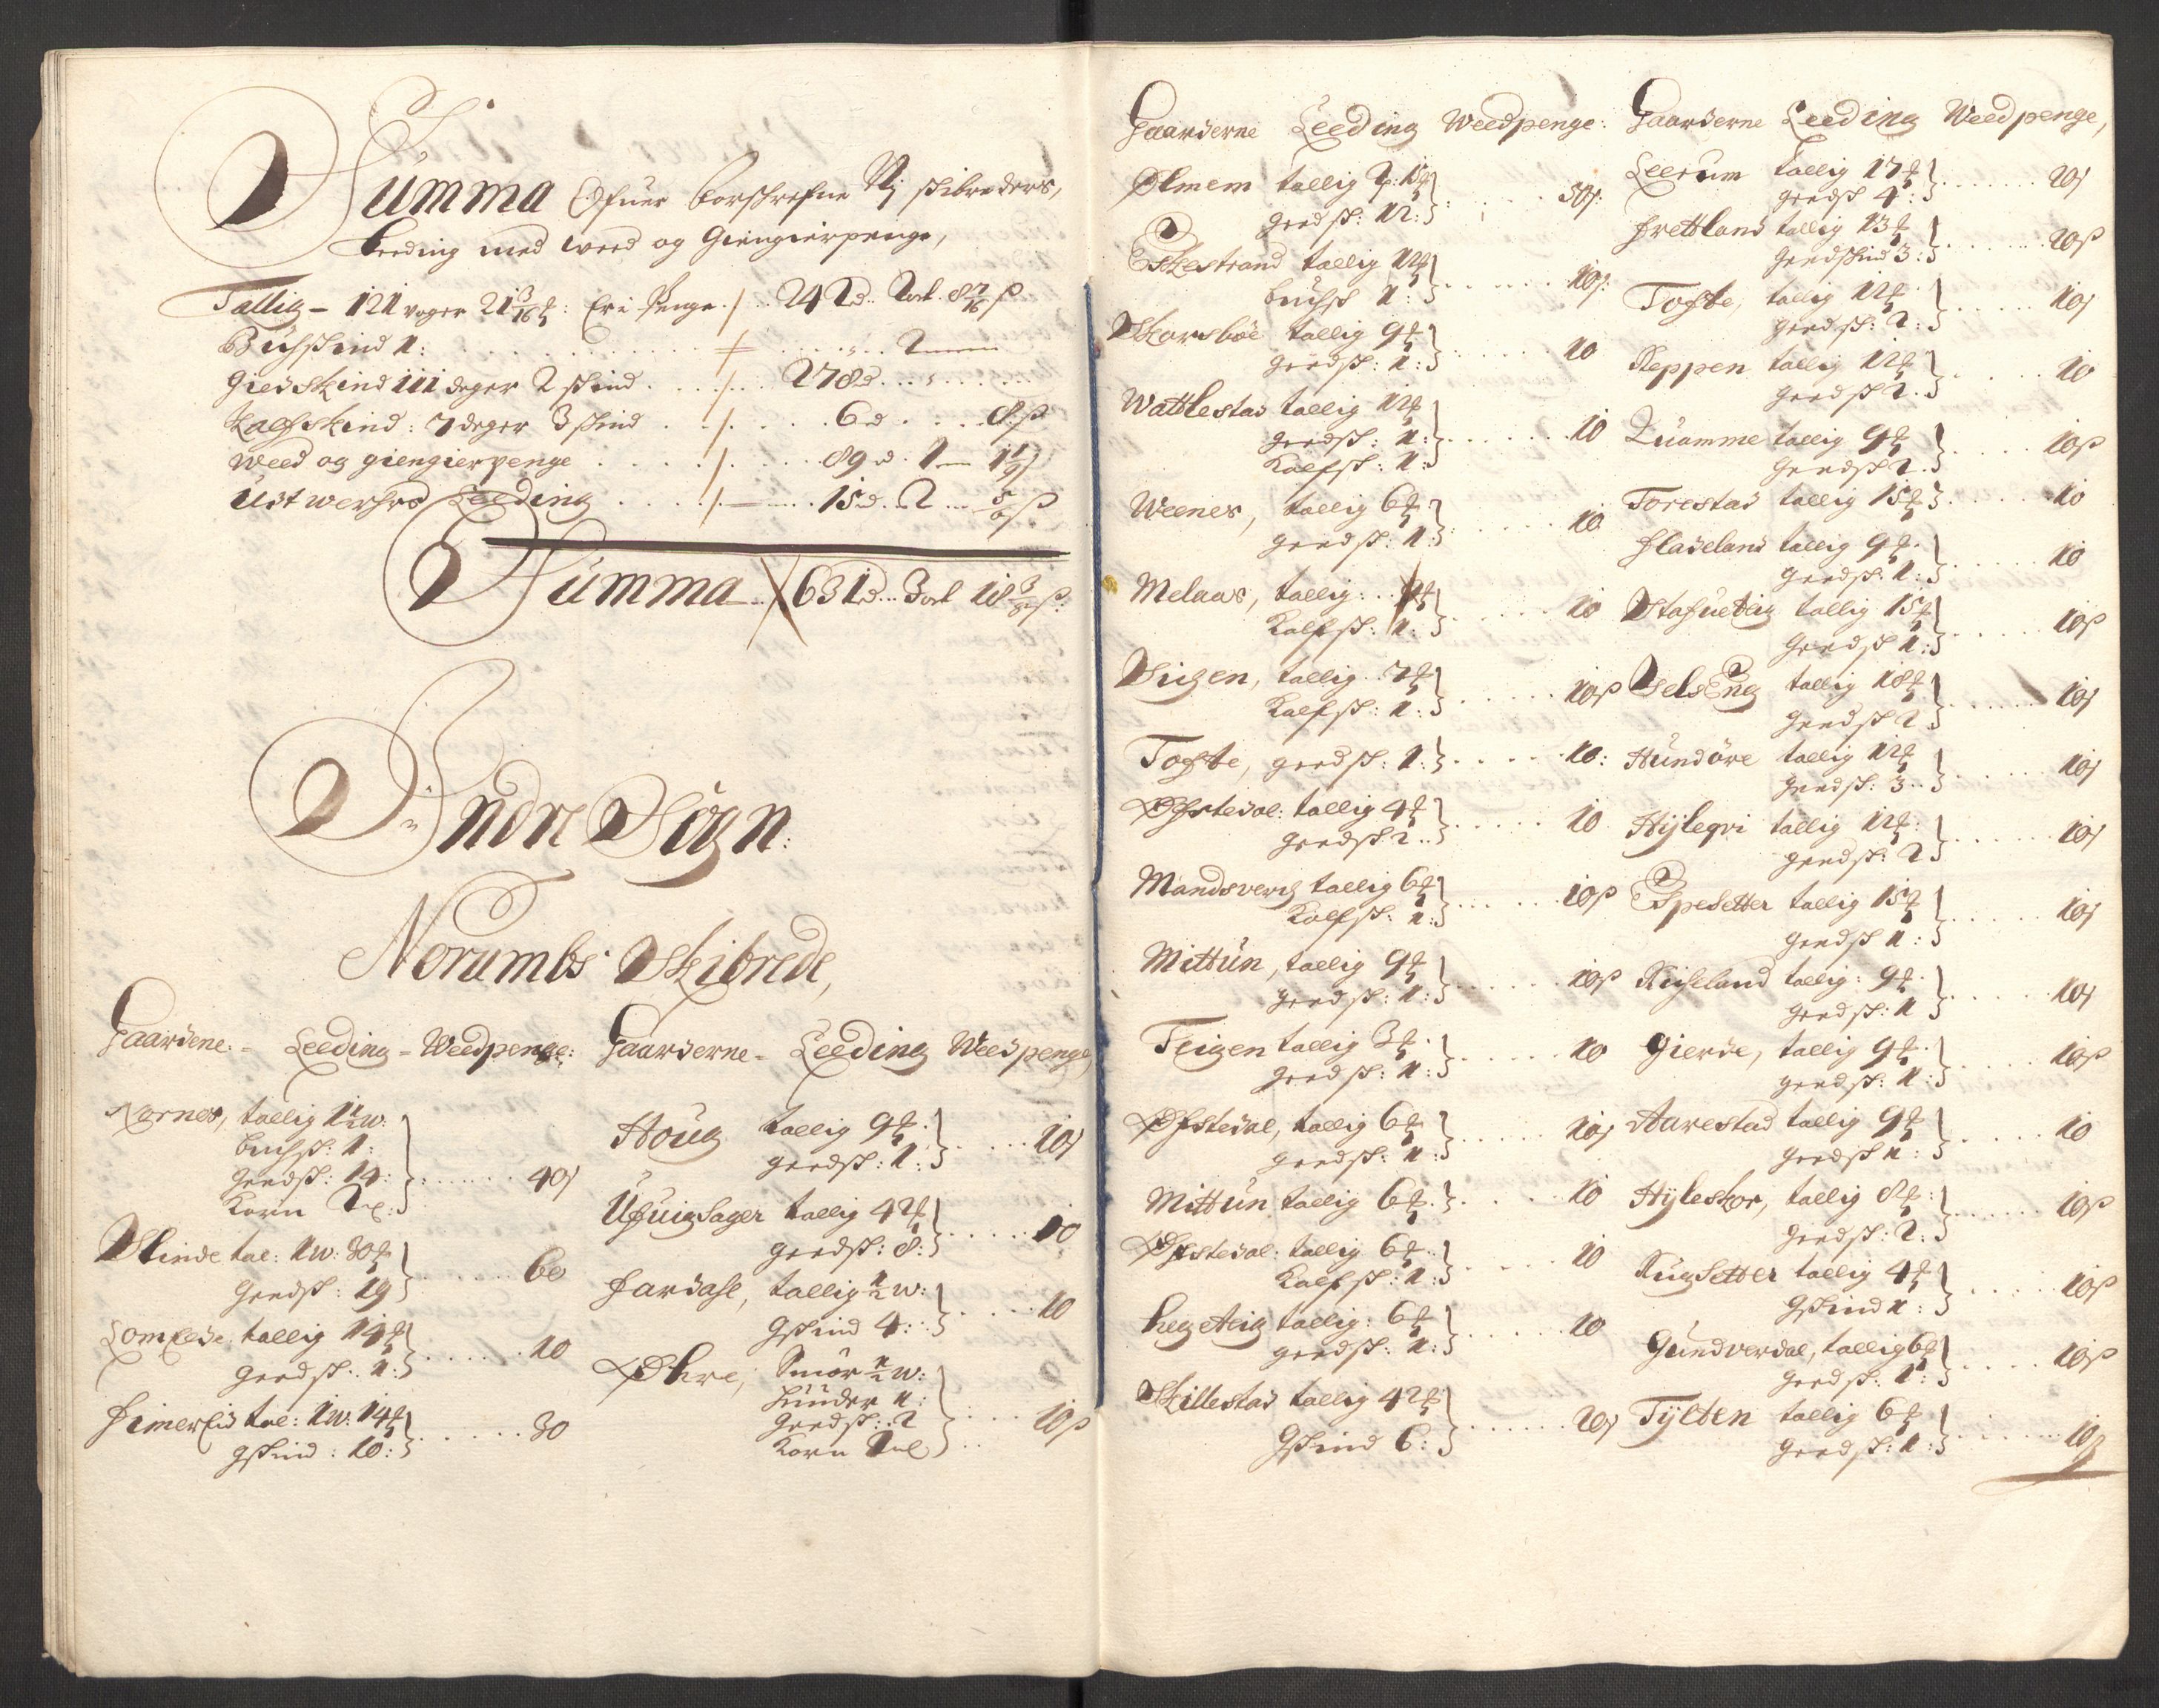 Summa Ofuer forschrefne skibreders,
Leeding med weed og Giengierpenge,
Tallig – 121 woger 21 3/16 : Er i Penge ./. 242 d. 8 7/16 ß
Buchskind 1:
Giedskind 111 deger 2 skind . . . 278 d.
Kalfskind: 7 deger 3 skind . . . 6 d . . 8 ß
Weed og giengierpenge . . . 89 d. 1
Ustwerfvs Leeding . . . 15 d. 2
Summa 631 d. 3 ort 18 ß:
Indre Sogn:
Norumbs Skibrede,
Gaardene: - Leeding - Weedpenge:
Nornes, tallig 1½ w:
buchsk: 1:
geedsk: 14: . . . 40 ß
Korn
Slinde tal: 1 w: 30
Geedsk: 19 . . . 60
Lomelde tallig 14
geedsk: 1: . . . 10
Fimreid tal: 1 w: 14
gskind: 10: . . . 30
Gaarderne - Leeding Weedpenge
Houg tallig 9
geedsk: 1: . . . 10 ß
Ufuigsager tallig 42
geedsk: 8: . . . 10
Fardahl, tallig ½ w:
Gskind 4: . . . 10
Øhre, Smör ½ w:
huuder 1:
Geedsk: 2 . . . 10 ß
Korn
Gaarderne Leeding Weedpenge:
Olmem tallig
geedsk: 12: . . . 30 ß:
Eskestrand tallig 12
buchsk 1: . . . 10 ß:
Skarsböe tallig 9
geedsk: 1: . . . 10
Wattlestad tallig 12
geedsk: 1: . . . 10
Kalfsk: 1:
Weenes, tallig 6
geedsk: 1: . . . 10
Melaas, tallig:
Kalfsk: 1: . . . 10
Stigen, tallig 7
Kalfsk: 1: . . . 10 ß
Tofte, geedsk: 1: . . . 10:
Øfstedal: tallig 4
geedsk 2 . . . 10
Mandsverg tallig 6
Kalfsk: 1: . . . 10 ß
Mittun, tallig 9
geedsk: 1: . . . 10 ß
Teigen tallig 3
geedsk: 1: . . . 10
Øfstedal, tallig 6
geedsk: 1: . . . 10 ß
Mittun tallig 6 . . . 10
Øfstedal: tallig 6
Kalfsk: 1: . . . 10
Hegeteig tallig: 6
geedsk: 1: . . . 10
Skillestad tallig 42
Gskind 6: . . . 20 ß
Gaarderne Leeding Weedpenge,
Leerum tallig 17
geedsk 4: . . . 20 ß
Frettland tallig 13
Geedskind 3: . . . 20 ß
Tofte, tallig 12
geedsk: 2: . . . 10 ß
Reppen tallig 12
geedsk 2. . . . 10
Quamme tallig 9
Geedsk 2. . . . 10 ß
Torestad tallig 15 . . . 10
Fladeland tallig 9
geedsk: 1: . . . 10
Stafueteig tallig 15
geedsk 1: . . . 10 ß
SelsEng tallig 18
geedsk 2 . . . 10 ß
Hundöre tallig 12
geedsk: 3 . . . 10 ß
Hyleqvi tallig 12
geedsk: 2 . . . 10 ß
Espesetter tallig 15
geedsk 1: . . . 10 ß
Kuseland tallig: 9
geedsk: 1 . . . 10 ß
Gierde, tallig 9
geedsk: 1: . . . 10 ß
Aarestad tallig 9
geedsk 1: . . . 10
Hyleskor, tallig 8
geedsk: 2: . . . 10 ß
Rugsetter tallig 4
Gskind 1: . . . 10 ß
Gundverdal, tallig 6
geedsk: 1: . . . 10 ß
Tylten tallig 6
geedsk: 1: . . . 10 ß